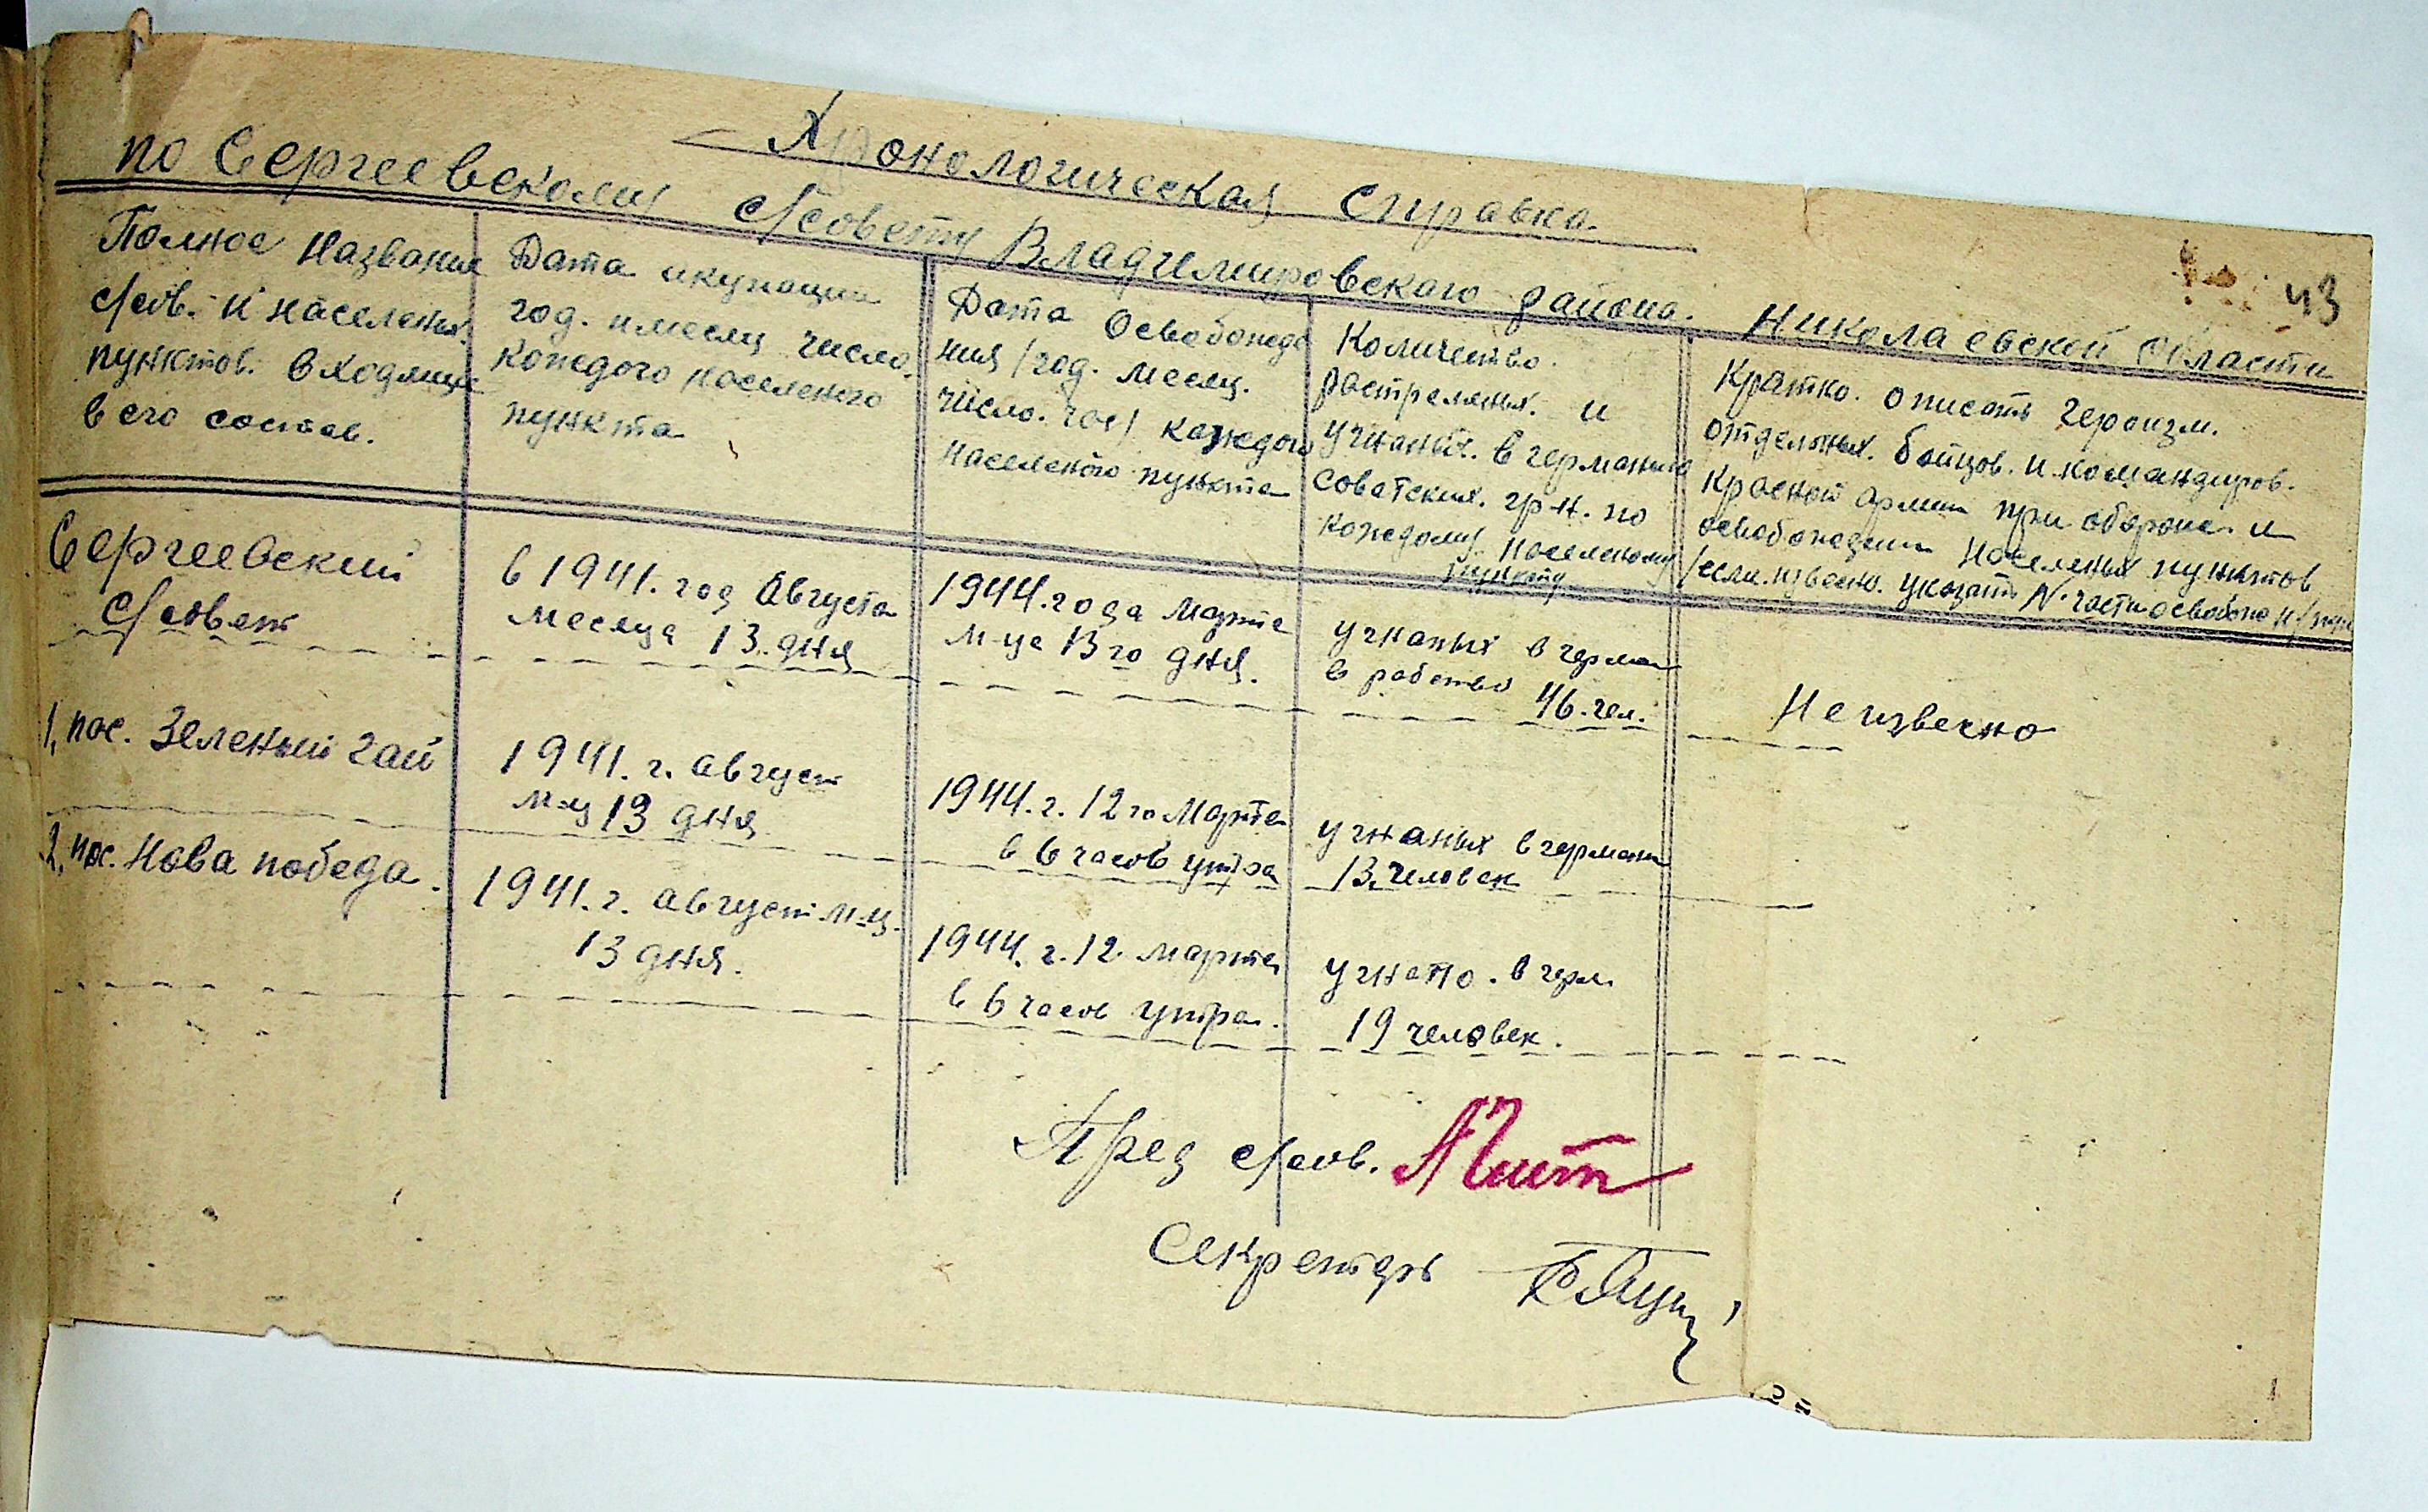 Хронологическая справка.
по Сергеевскому с/совету Владимировского района. Николаевской области
43
Полное название
с/сов. и населеных.
пунктов. входящие
в его состав.
Дата окупации
год. и месяц число.
каждого населеного
пункта
Дата Освобожде
ния /год. месяц.
число. час/ каждого
населеного пункта
Количество.
растреляных. и
угнаных. в германию
советских. гр-н. по
каждому населеному
пункту
Кратко. описать героизм.
отдельных. бойцов. и командиров.
Красной армии при обороне. и
освобождении населеных пунктов
/если. извесно. указать № части освобож н/пун
Сергеевский
с/совет
в 1941. год Августа
месяца 13. дня
1944. года марта
м-ца 13 го дня.
угнаных в герман
в рабство
46. чел.
Неизвесно
1, пос. Зеленый гай
1941. г. август
м-ц 13 дня
1944. г. 12 го Марта
в 6 часов утра
угнаных в герман
13. человек
2, пос. Нова победа.
1941. г. август м-ц.
13 дня.
1944. г. 12 марта
в 6 часов утра.
угнато. в герм.
19 человек.
Пред с/сов.
Секретарь